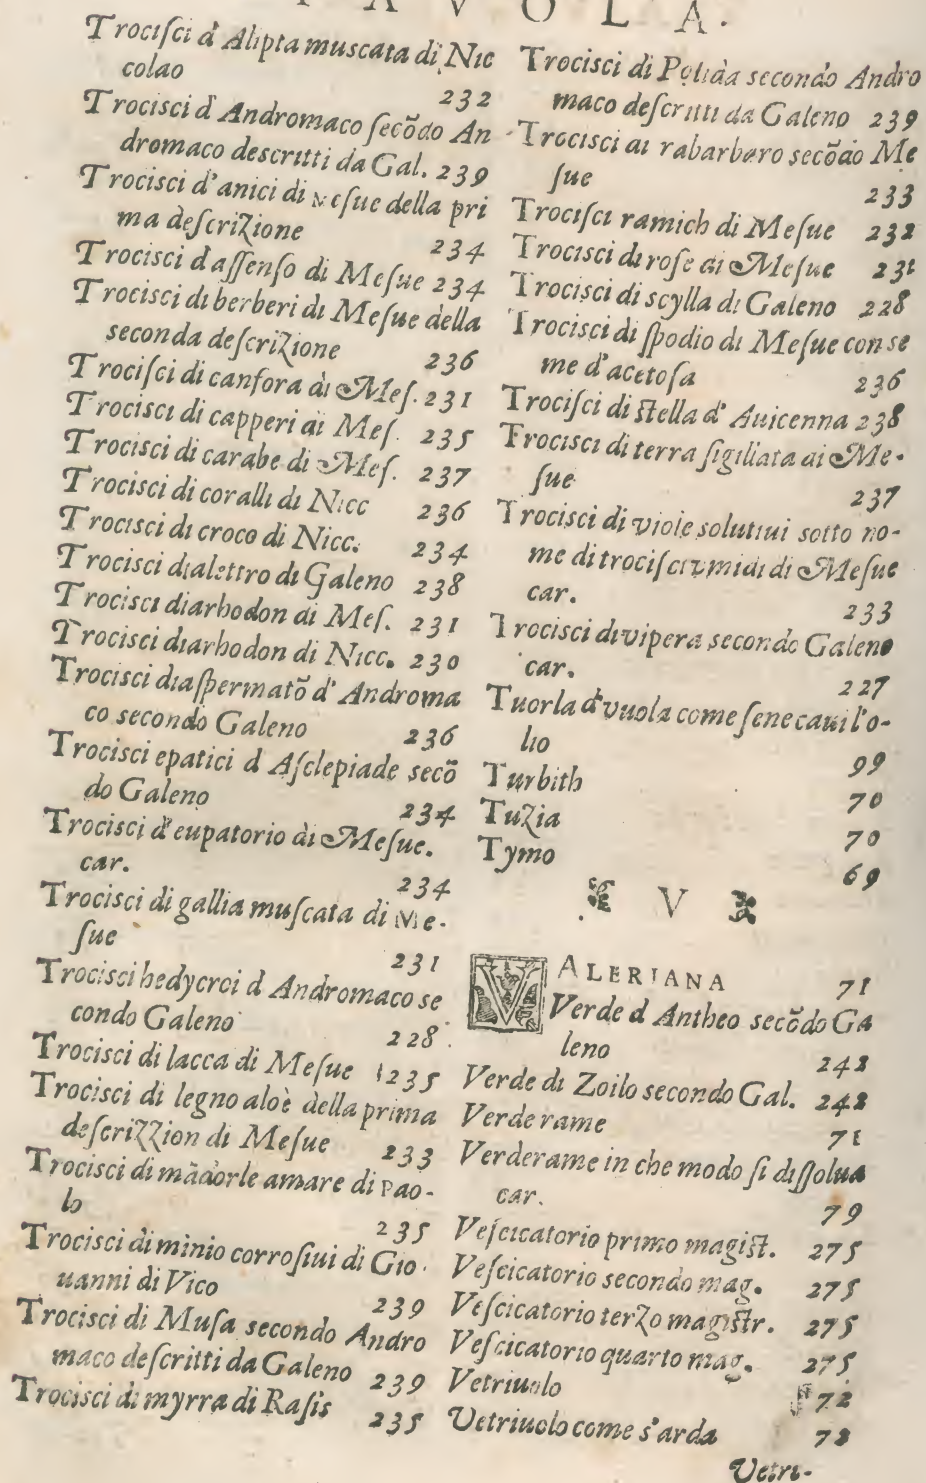 TAVOLA.
Trociſci d'Alipta muscata di Nic
colao 232
Trocisci d Andromaco ſecõdo An
dromaco descritti da Gal. 239
Trocisci d'anici di Meſue della pri
ma deſcriZione 234
Trocisci d aſſenſo di Meſue 234
Trocisci di berberi di Meſue della
seconda deſcriZione 236
Trociſci di canfora di Meſ. 231
Trocisci di capperi di Meſ. 235
Trocisci di carabe di Meſ. 237
Trocisci di coralli di Nicc 236
Trocisci di croco di Nicc. 234
Trocisci dialettro di Galeno 238
Trocisci diarhodon di Meſ. 231
Trocisci diarhodon di Nicc. 230
Trocisci diaſpermatõ d' Androma
co secondo Galeno 236
Trocisci epatici d Aſclepiade secõ
do Galeno 234
Trocisci d'eupatorio di Meſue.
car. 234
Trocisci di gallia muſcata di Me-
ſue 231
Trocisci hedycroi d Andromaco se
condo Galeno 228
Trocisci di lacca di Meſue 235
Trocisci di legno aloè della prima
deſcriZZion di Meſue 233
Trocisci di mãdorle amare di Pao-
lo 235
Trocisci di minio corroſiui di Gio
uanni di Vico 239
Trocisci di Muſa secondo Andro
maco deſcritti da Galeno 239
Trocisci di myrra di Raſis 235
Trocisci di Polida secondo Andro
maco deſcritti da Galeno 239
Trocisci di rabarbaro secõdo Me
ſue 233
Trociſci ramich di Meſue 232
Trocisci di roſe di Meſue 231
Trocisci di scylla di Galeno 228
Trocisci di ſpodio di Meſue con se
me d'acetoſa 236
Trociſci di ſtella d' Auicenna 238
Trocisci di terra ſigillata di Me-
ſue 237
Trocisci di viole solutiui sotto no-
me di trociſci vmidi di Meſue
car. 233
Trocisci di vipera secondo Galeno
car. 227
Tuorla d'vuola come ſene caui l'o-
lio 99
Turbith 70
TuZia 70
Tymo 69
V
VALERIANA 71
Verde d Antheo secõdo Ga
leno 242
Verde di Zoilo secondo Gal. 242
Verde rame 71
Verderame in che modo ſi diſſolua
car. 79
Veſcicatorio primo magiſt. 275
Veſcicatorio secondo mag. 275
Veſcicatorio terZo magiſtr. 275
Veſcicatorio quarto mag. 275
Vetriuolo 72
Vetriuolo come s'arda 72
Vetri-